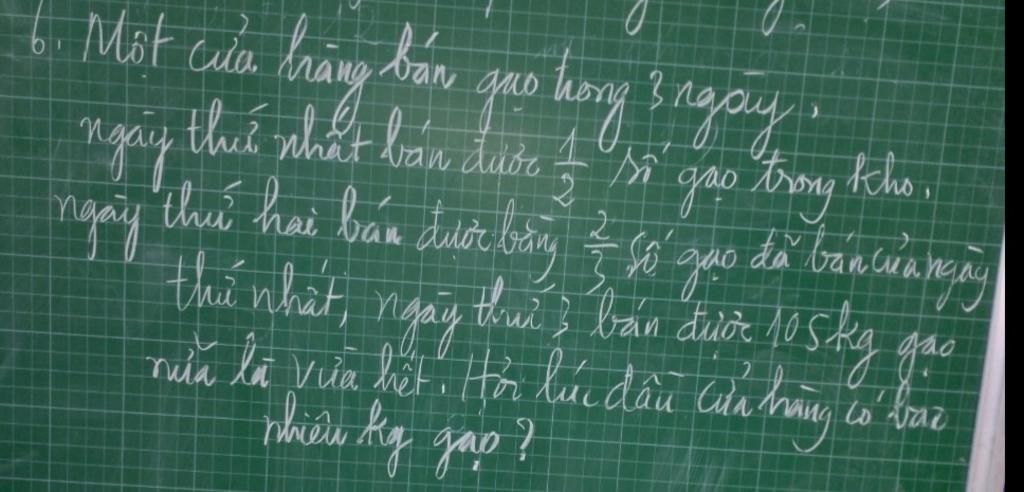 6. Một cửa hàng bán gạo trong 3 ngày.
ngày thứ nhất bán được 1/2 số gạo trong kho.
ngày thứ hai bán được bằng 2/3 số gạo đã bán của ngày
thứ nhất, ngày thứ 3 bán được 105kg gạo
nữa là vừa hết. Hỏi lúc đầu cửa hàng có bao
nhiêu kg gạo?